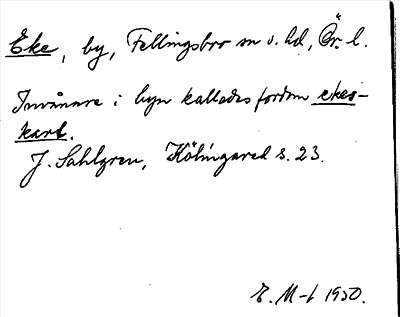 Eke, by, Fellingsbro sn o. hd, Ör. l.
Invånare i byn kallades fordom ekes-
kart.
J. Sahlgren, Kölingared s. 23.
E. M-t 1950.